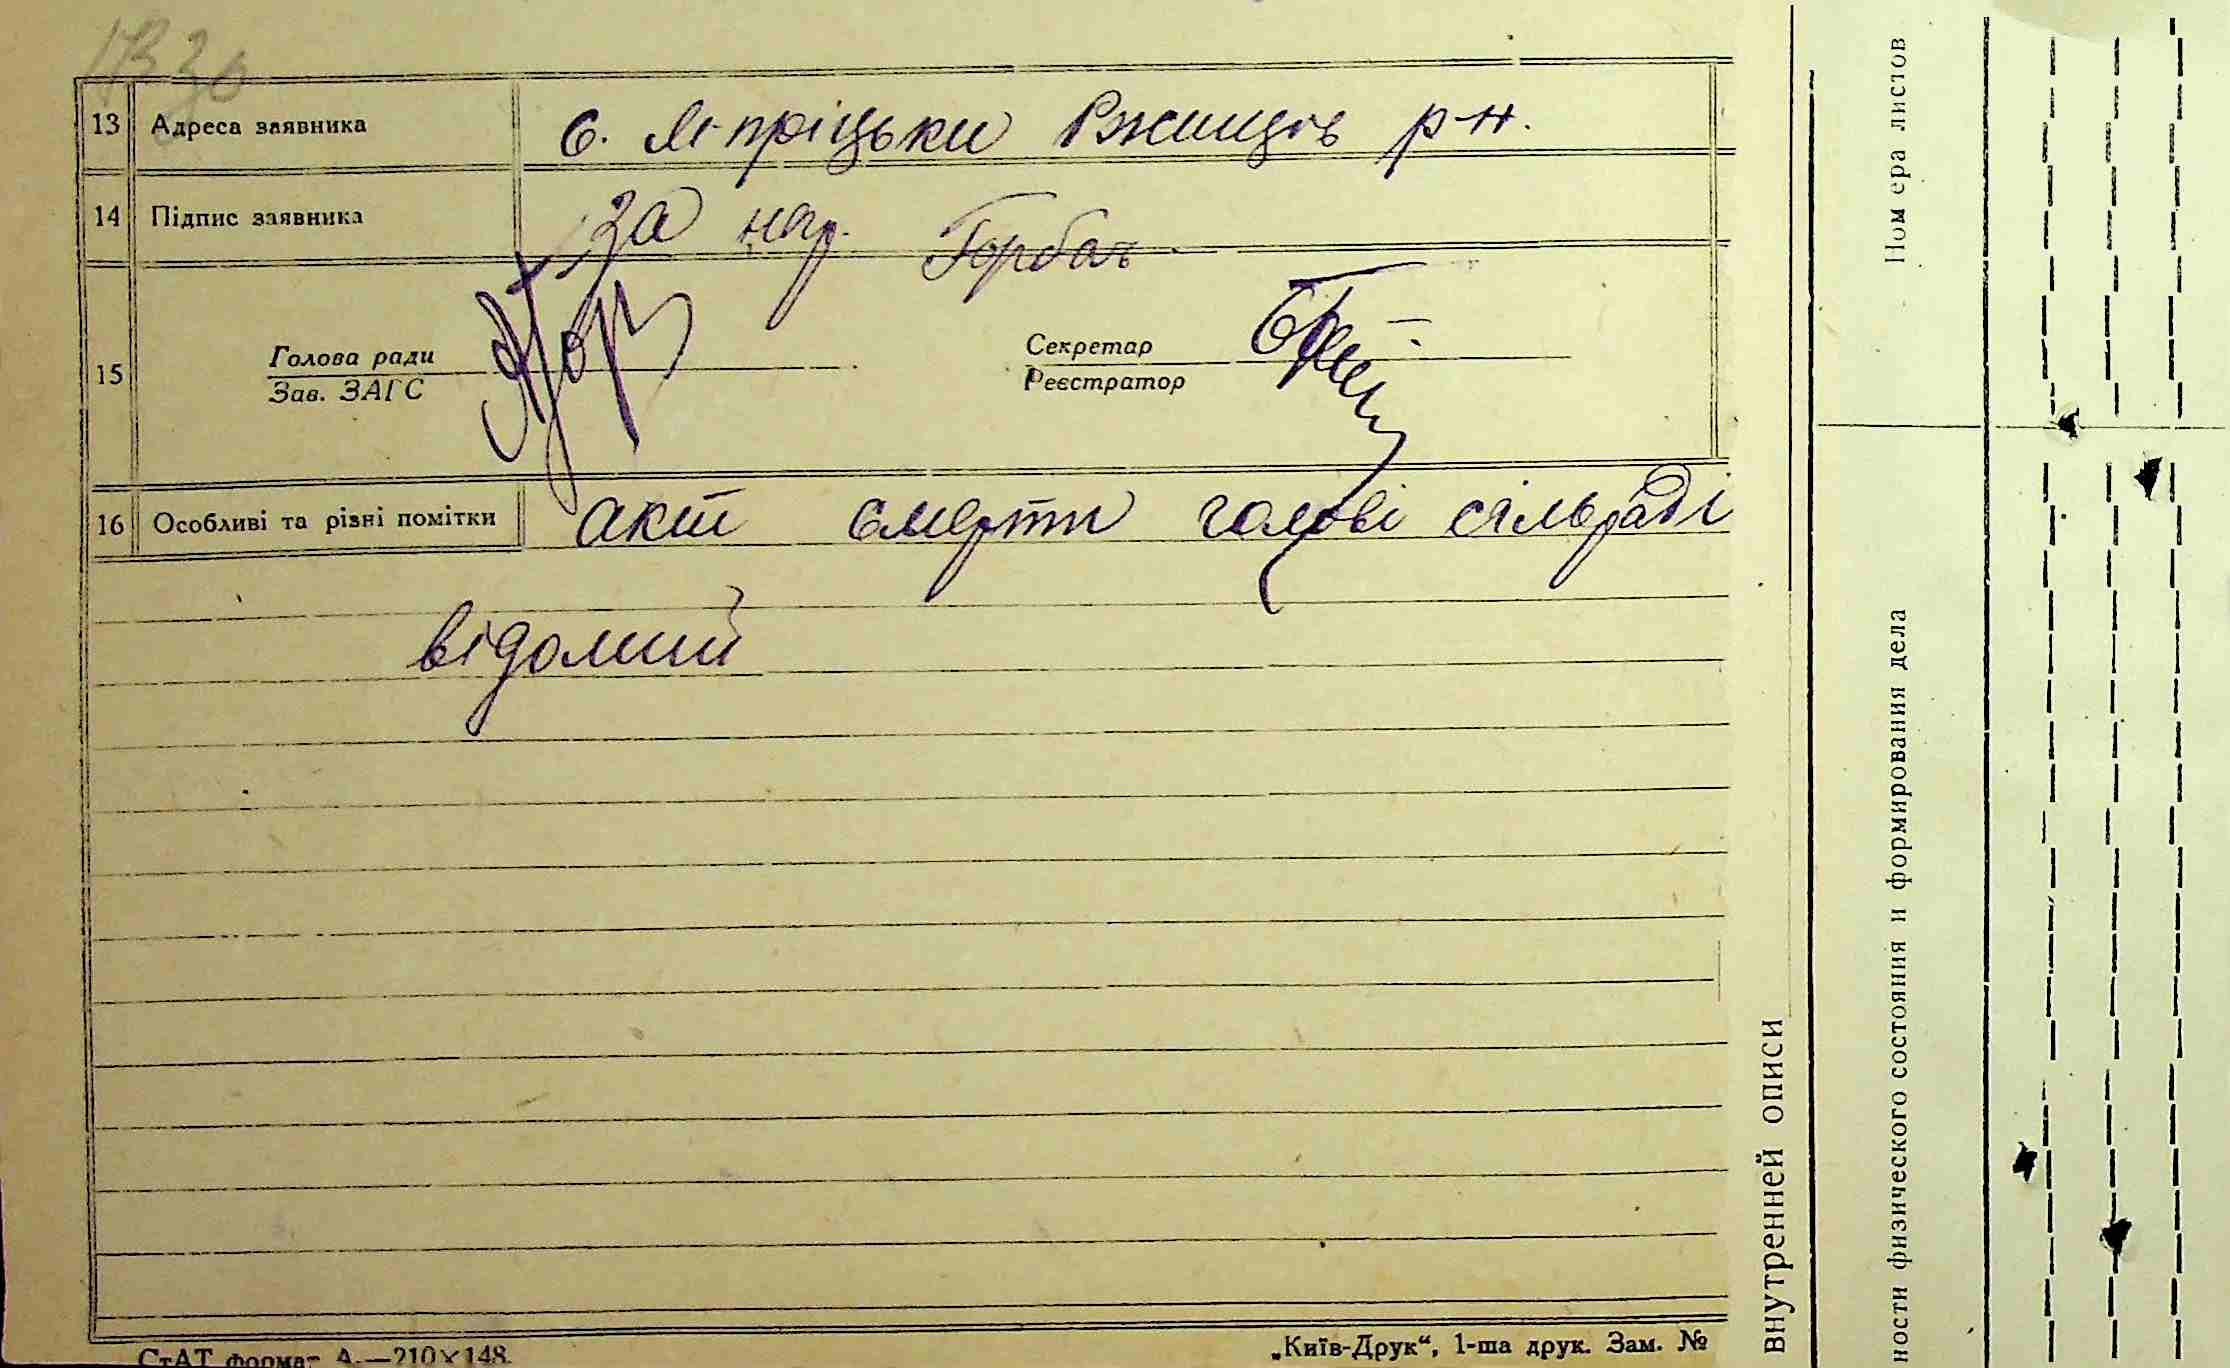 13 Адреса заявника с. М-пріцьки Ржищів р-н.
14 Підпис заявника за нар. Горбач
15 Голова ради Секретар
Зав. ЗАГС Реєстратор
16 Особливі та різні помітки акт смерти голові сільраді
відомий
СтАТ формат А.—210×148. „Київ-Друк“, 1-ша друк. Зам. №
внутренней описи
Номера листов
ности физического состояния и формирования дела